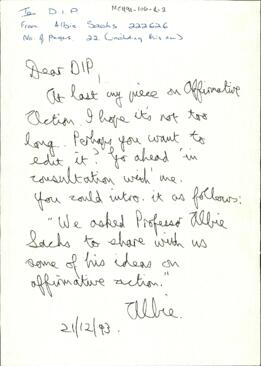 To DIP MCH91-100-6-2
From Albie Sachs 222626
No. of Pages 22 (including this one)
Dear DIP,
At last my piece on Affirmative
Action. I hope it's not too
long. Perhaps you want to
edit it? Go ahead in
consultation with me.
You could intro. it as follows:
"We asked Professor Albie
Sachs to share with us
some of his ideas on
affirmative action."
Albie.
21/12/93.